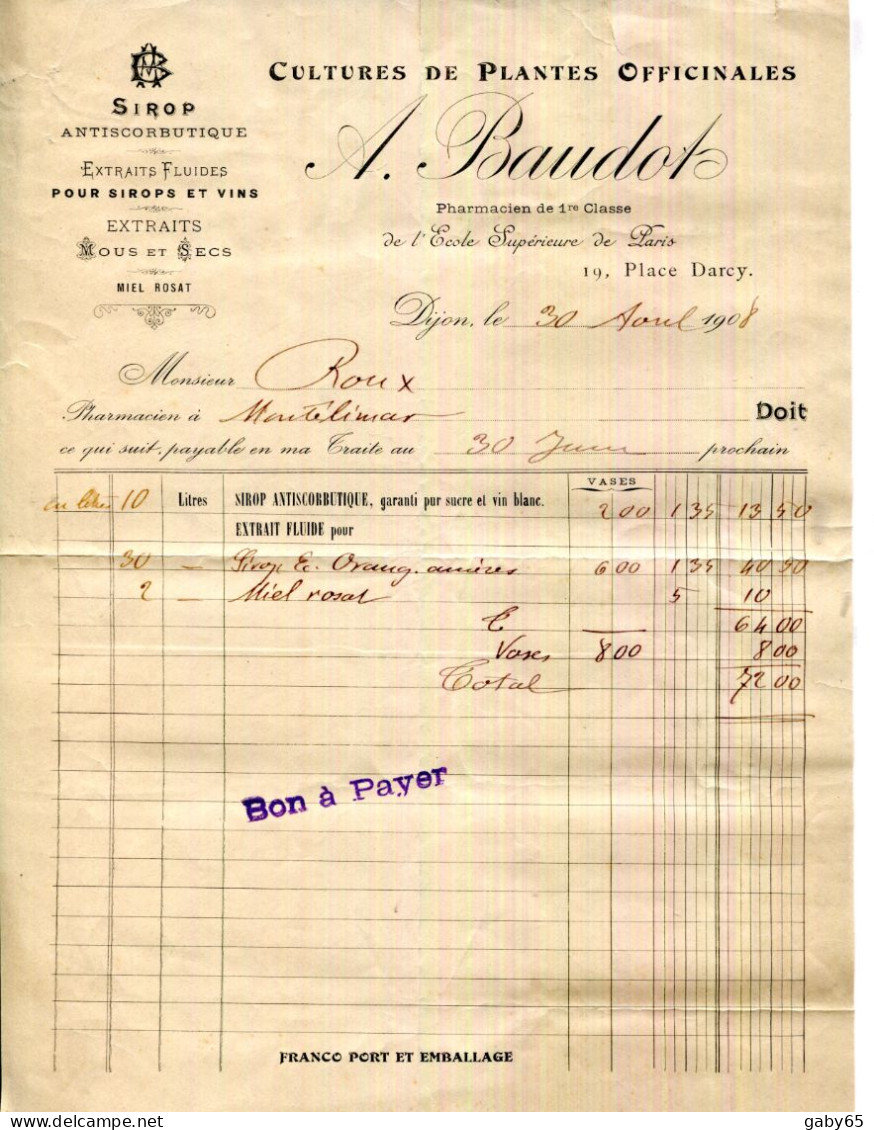 CULTURES DE PLANTES OFFICINALES
A. Baudot
Pharmacien de 1re Classe
de l'Ecole Supérieure de Paris
19, Place Darcy.
SIROP
ANTISCORBUTIQUE
EXTRAITS FLUIDES
POUR SIROPS ET VINS
EXTRAITS
MOUS ET SECS
MIEL ROSAT
Dijon, le 30 Avril 1908
Monsieur Roux
Pharmacien à Montélimar Doit
ce qui suit, payable en ma Traite au 30 Juin prochain
VASES
en litres 10 Litres SIROP ANTISCORBUTIQUE, garanti pur sucre et vin blanc. 2 00 1 35 13 50
EXTRAIT FLUIDE pour
30 — Sirop Ec. Orang. amères 6 00 1 35 40 50
2 — Miel rosat 5 10
64 00
Vases 8 00 8 00
Total 72 00
Bon à Payer
FRANCO PORT ET EMBALLAGE
gaby65